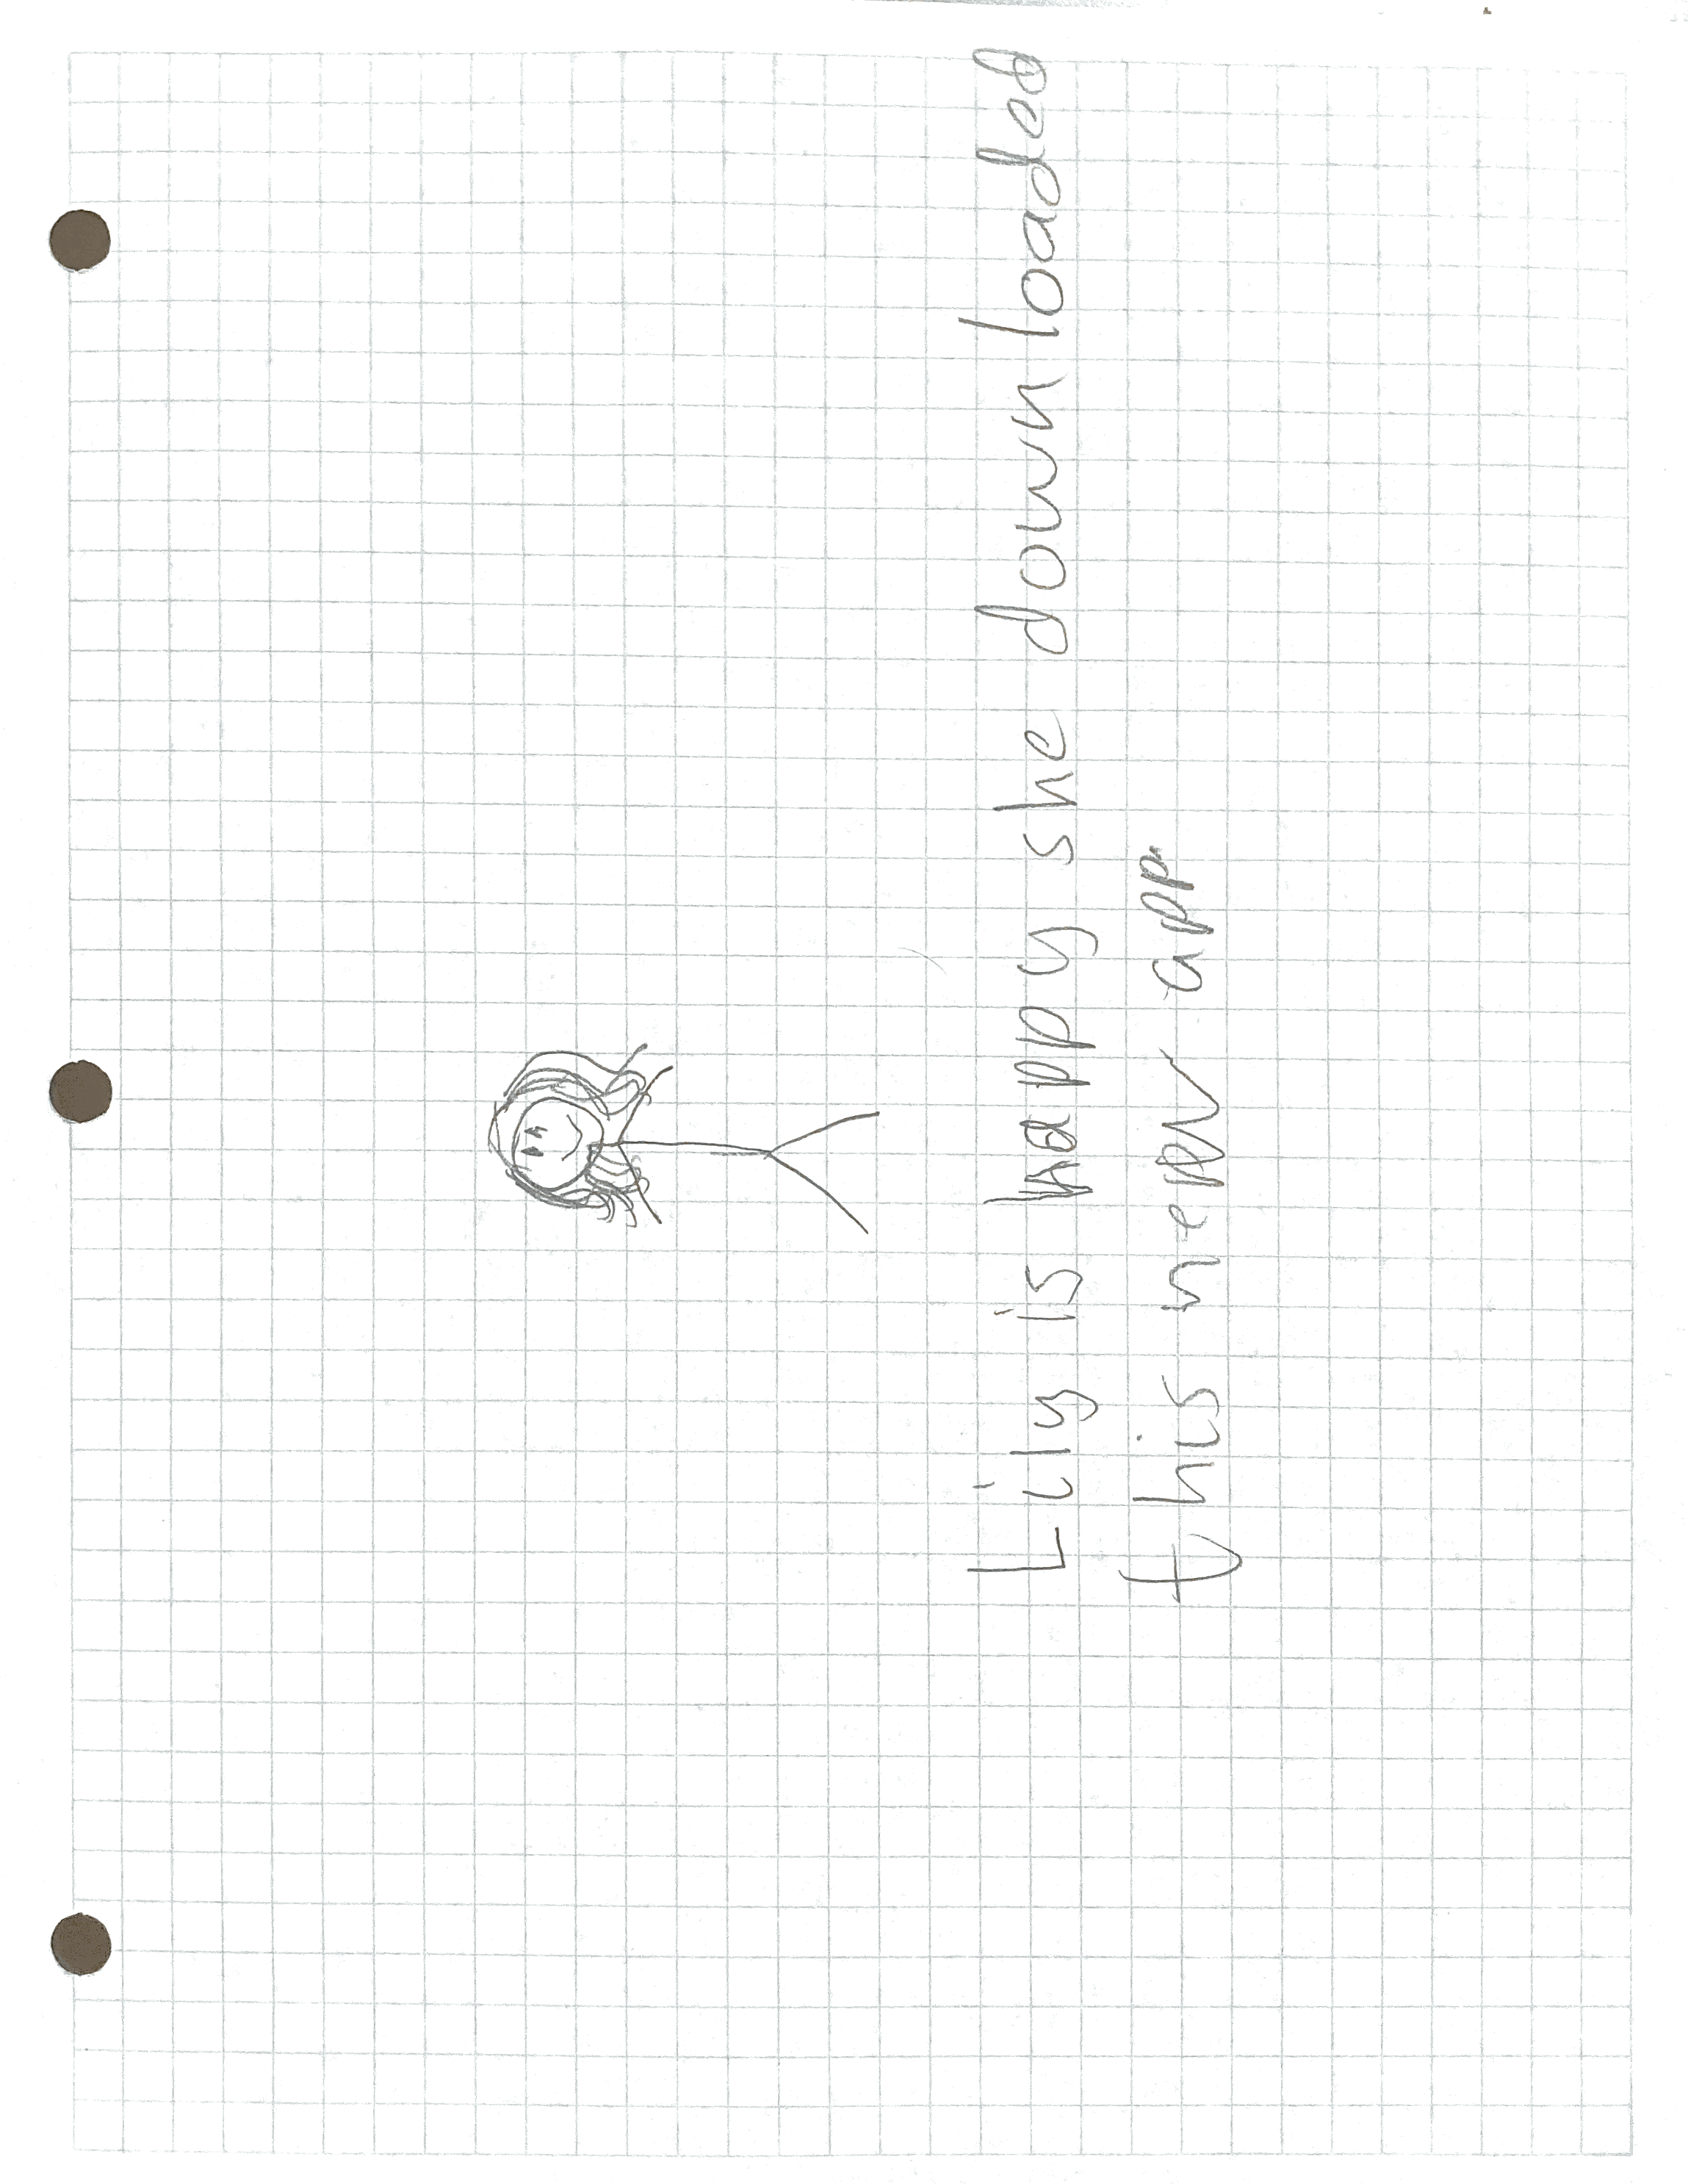 Lily is happy she downloaded
this new app